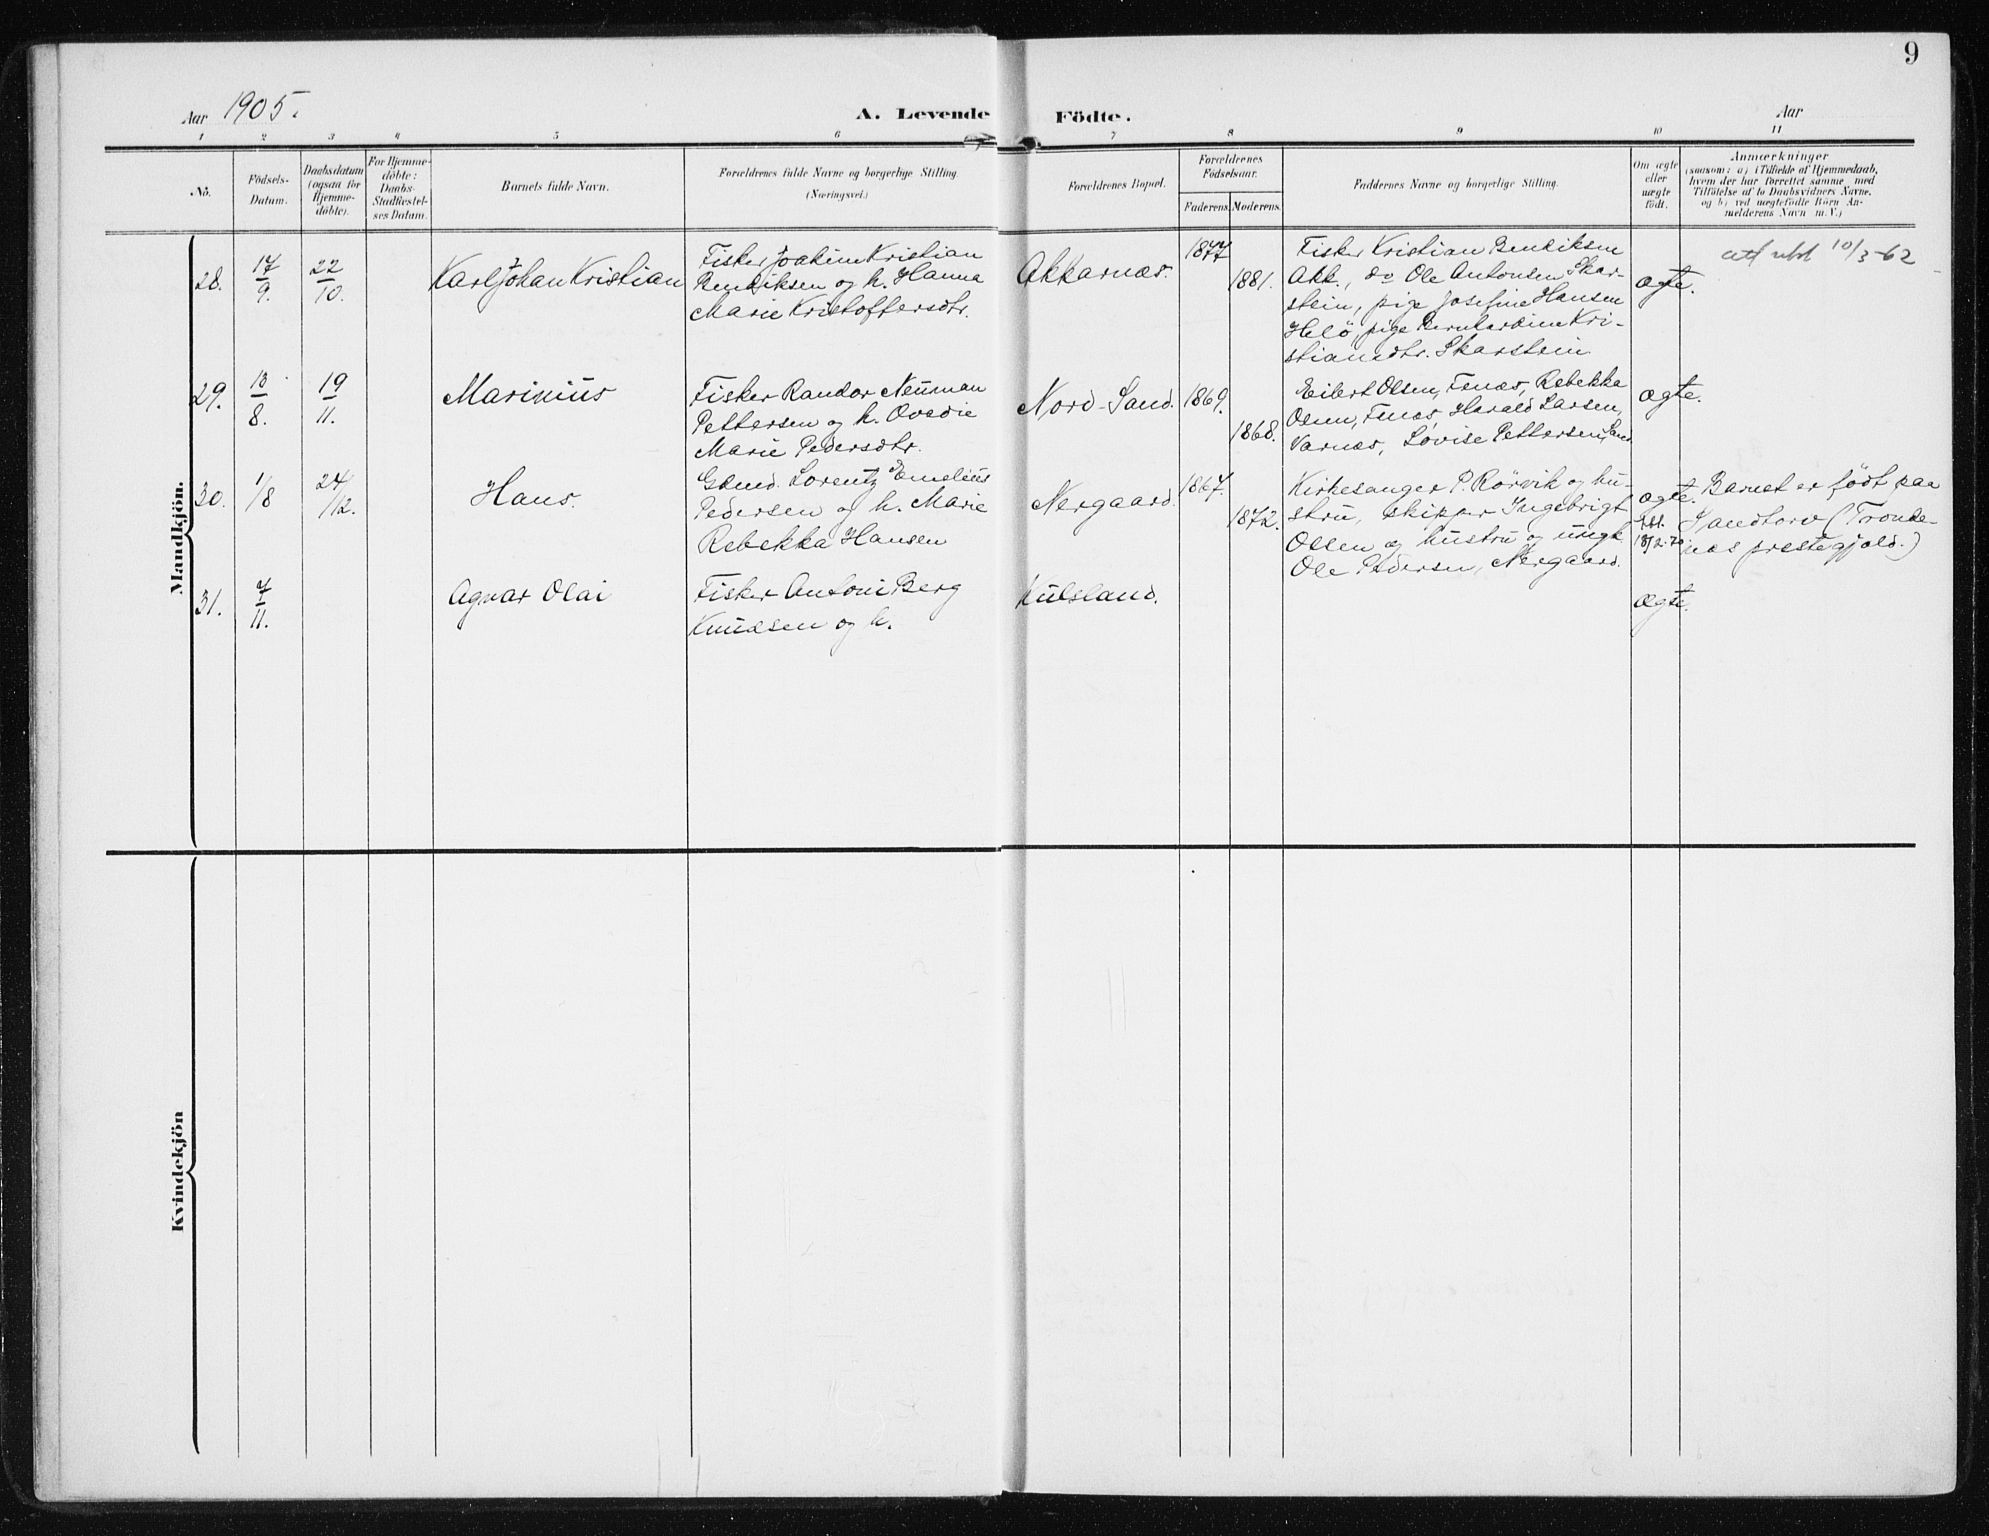 9
Aar 1905.
A. Levende Födte.
Aar
1 2 3 4 5 6 7 8 9 10 11
No.
Födsels-
Datum.
Daabsdatum
(ogsaa for
Hjemme-
döbte).
For Hjemme-
döbte:
Daabs-
Stadfæstel-
ses Datum.
Barnets fulde Navn.
Forældrenes fulde Navne og borgerlige Stilling.
(Næringsvei.)
Forældrenes Bopæl.
Forældrenes
Födselsaar.
Faderens. Moderens.
Faddernes Navne og borgerlige Stilling.
Om ægte
eller
uægte
födt.
Anmærkninger
(saasom: a) (Tilfælde af Hjemmedaab,
hvem der har forrettet samme, med
Tilföielse af to Daabsvidners Navne,
og b) ved uægtefödte Börn An-
melderens Navn m. V.)
Mandkjön.
28.
17/9.
22/10.
Karl Johan Kristian
Fisker Joakim Kristian
Bendiksen og h. Hanna
Marie Kristoffersdtr.
Akkarnæs.
1877
1881.
Fisker Kristian Bendiksen
Akk., do Ole Antonsen Skar-
stein, pige Josefine Hansen
Helö, pige Bernhardine Kri-
stiansdtr. Skarstein
ægte.
10/3-62
29.
13/8.
19/11.
Marinius
Fisker Randor Neuman
Pettersen og h. Ovedie
Marie Pedersdtr.
Nord-Sand.
1869.
1868.
Eilert Olsen, Fenæs, Rebekka
Olsen, Fenæs, Harald Larsen,
Varnæs, Lovise Pettersen, Sand
ægte.
30.
1/8
24/12.
Hans.
Gdmd. Lorentz Emelius
Pedersen og h. Marie
Rebekka Hansen
Nergaard.
1867.
1872.
Kirkesanger P. Rörvik og hu-
stru, skipper Ingebrigt
Olsen og hustru og ungk.
Ole Pedersen, Nergaard.
ægte.
18/2.70
Barnet er født paa
Sandtorv (Tronde-
næs præstegjæld.)
31.
7/11.
Agnar Olai
Fisker Antoni Berg
Knudsen og h.
Kulsland.
ægte.
Kvindekjön